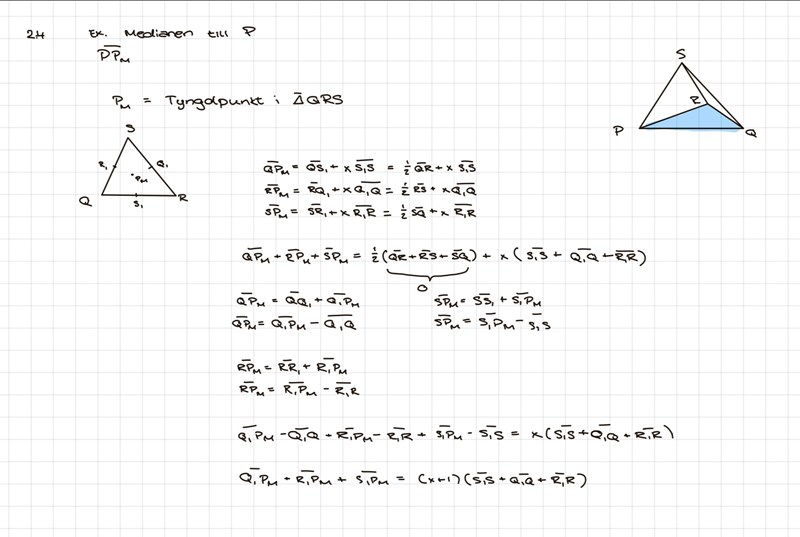 2.4 Ex. Medianen till P
DP_M
P_M = Tyngdpunkt i ΔQRS
S
R₁ Q₁
P_M
Q S₁ R
S
R
P Q
QP_M = QS₁ + x S₁S = ½ QR + x S₁S
RP_M = RQ₁ + x Q₁Q = ½ RS + x Q₁Q
SP_M = SR₁ + x R₁R = ½ SQ + x R₁R
QP_M + RP_M + SP_M = ½ (QR + RS + SQ) + x (S₁S + Q₁Q + R₁R)
0
QP_M = QQ₁ + Q₁P_M SP_M = SS₁ + S₁P_M
QP_M = Q₁P_M − Q₁Q SP_M = S₁P_M − S₁S
RP_M = RR₁ + R₁P_M
RP_M = R₁P_M − R₁R
Q₁P_M − Q₁Q + R₁P_M − R₁R + S₁P_M − S₁S = x (S₁S + Q₁Q + R₁R)
Q₁P_M + R₁P_M + S₁P_M = (x+1) (S₁S + Q₁Q + R₁R)